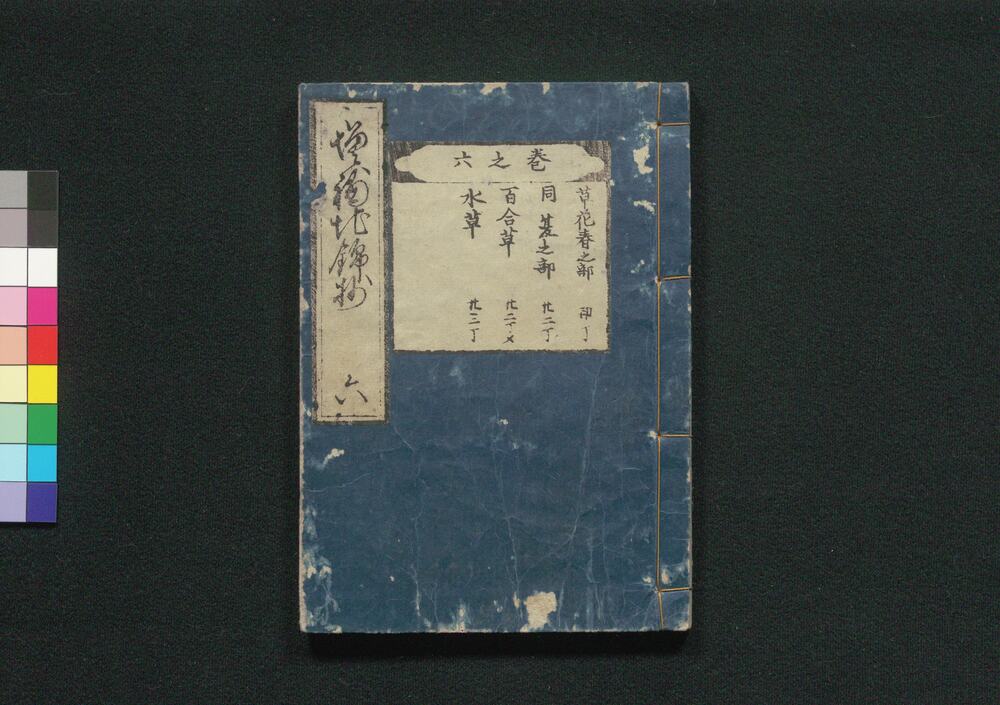 巻之六
草花春之部 初丁
同夏之部 廿二丁
百合草 廿二丁メ
水草 廿三丁
増補地錦抄 六